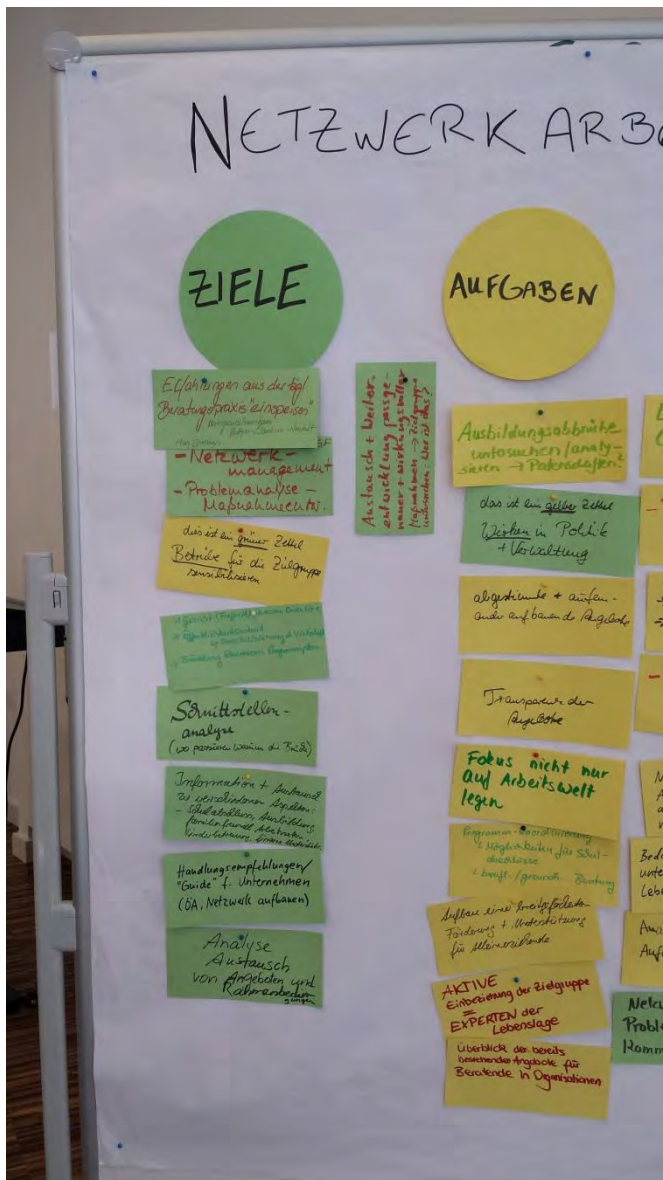 NETZWERKARB
ZIELE
Erfahrungen aus der tägl.
Beratungspraxis "einspeisen"
- Netzwerk-
management
- Problemanalyse -
dies ist ein grüner Zettel
Betriebe für die Zielgruppe
sensibilisieren
Schnittstellen-
analyse
(wo passieren warum die Brüche)
Information + Austausch
zu verschiedenen Aspekten:
- Schulabschluss, Ausbildung,
Handlungsempfehlungen/
"Guide" f. Unternehmen
(ÖA, Netzwerk aufbauen)
Analyse
Austausch
von Angeboten und
Rahmenbedin-
gungen
Austausch + Weiter-
entwicklung passge-
nauer + wirkungsvoller
Maßnahmen → Zielgruppe
untersuchen: Wer ist das?
AUFGABEN
Ausbildungsabbrüche
untersuchen/analy-
sieren → Patenschaften?
das ist ein gelber Zettel
Wirken in Politik
+ Verwaltung
abgestimmte + aufein-
ander aufbauende Angebote
Transparenz der
Angebote
Fokus nicht nur
auf Arbeitswelt
legen
Programm-Koordinierung
Möglichkeiten für Schul-
abschlüsse
Beratung
Aufbau einer
Förderung + Unterstützung
für Alleinerziehende
AKTIVE
Einbeziehung der Zielgruppe
=
EXPERTEN der
Lebenslage
Überblick der bereits
bestehenden Angebote für
Beratende in Organisationen
Bed
unte
Lebe
Ana
Auf
Netz
Proble
Komm